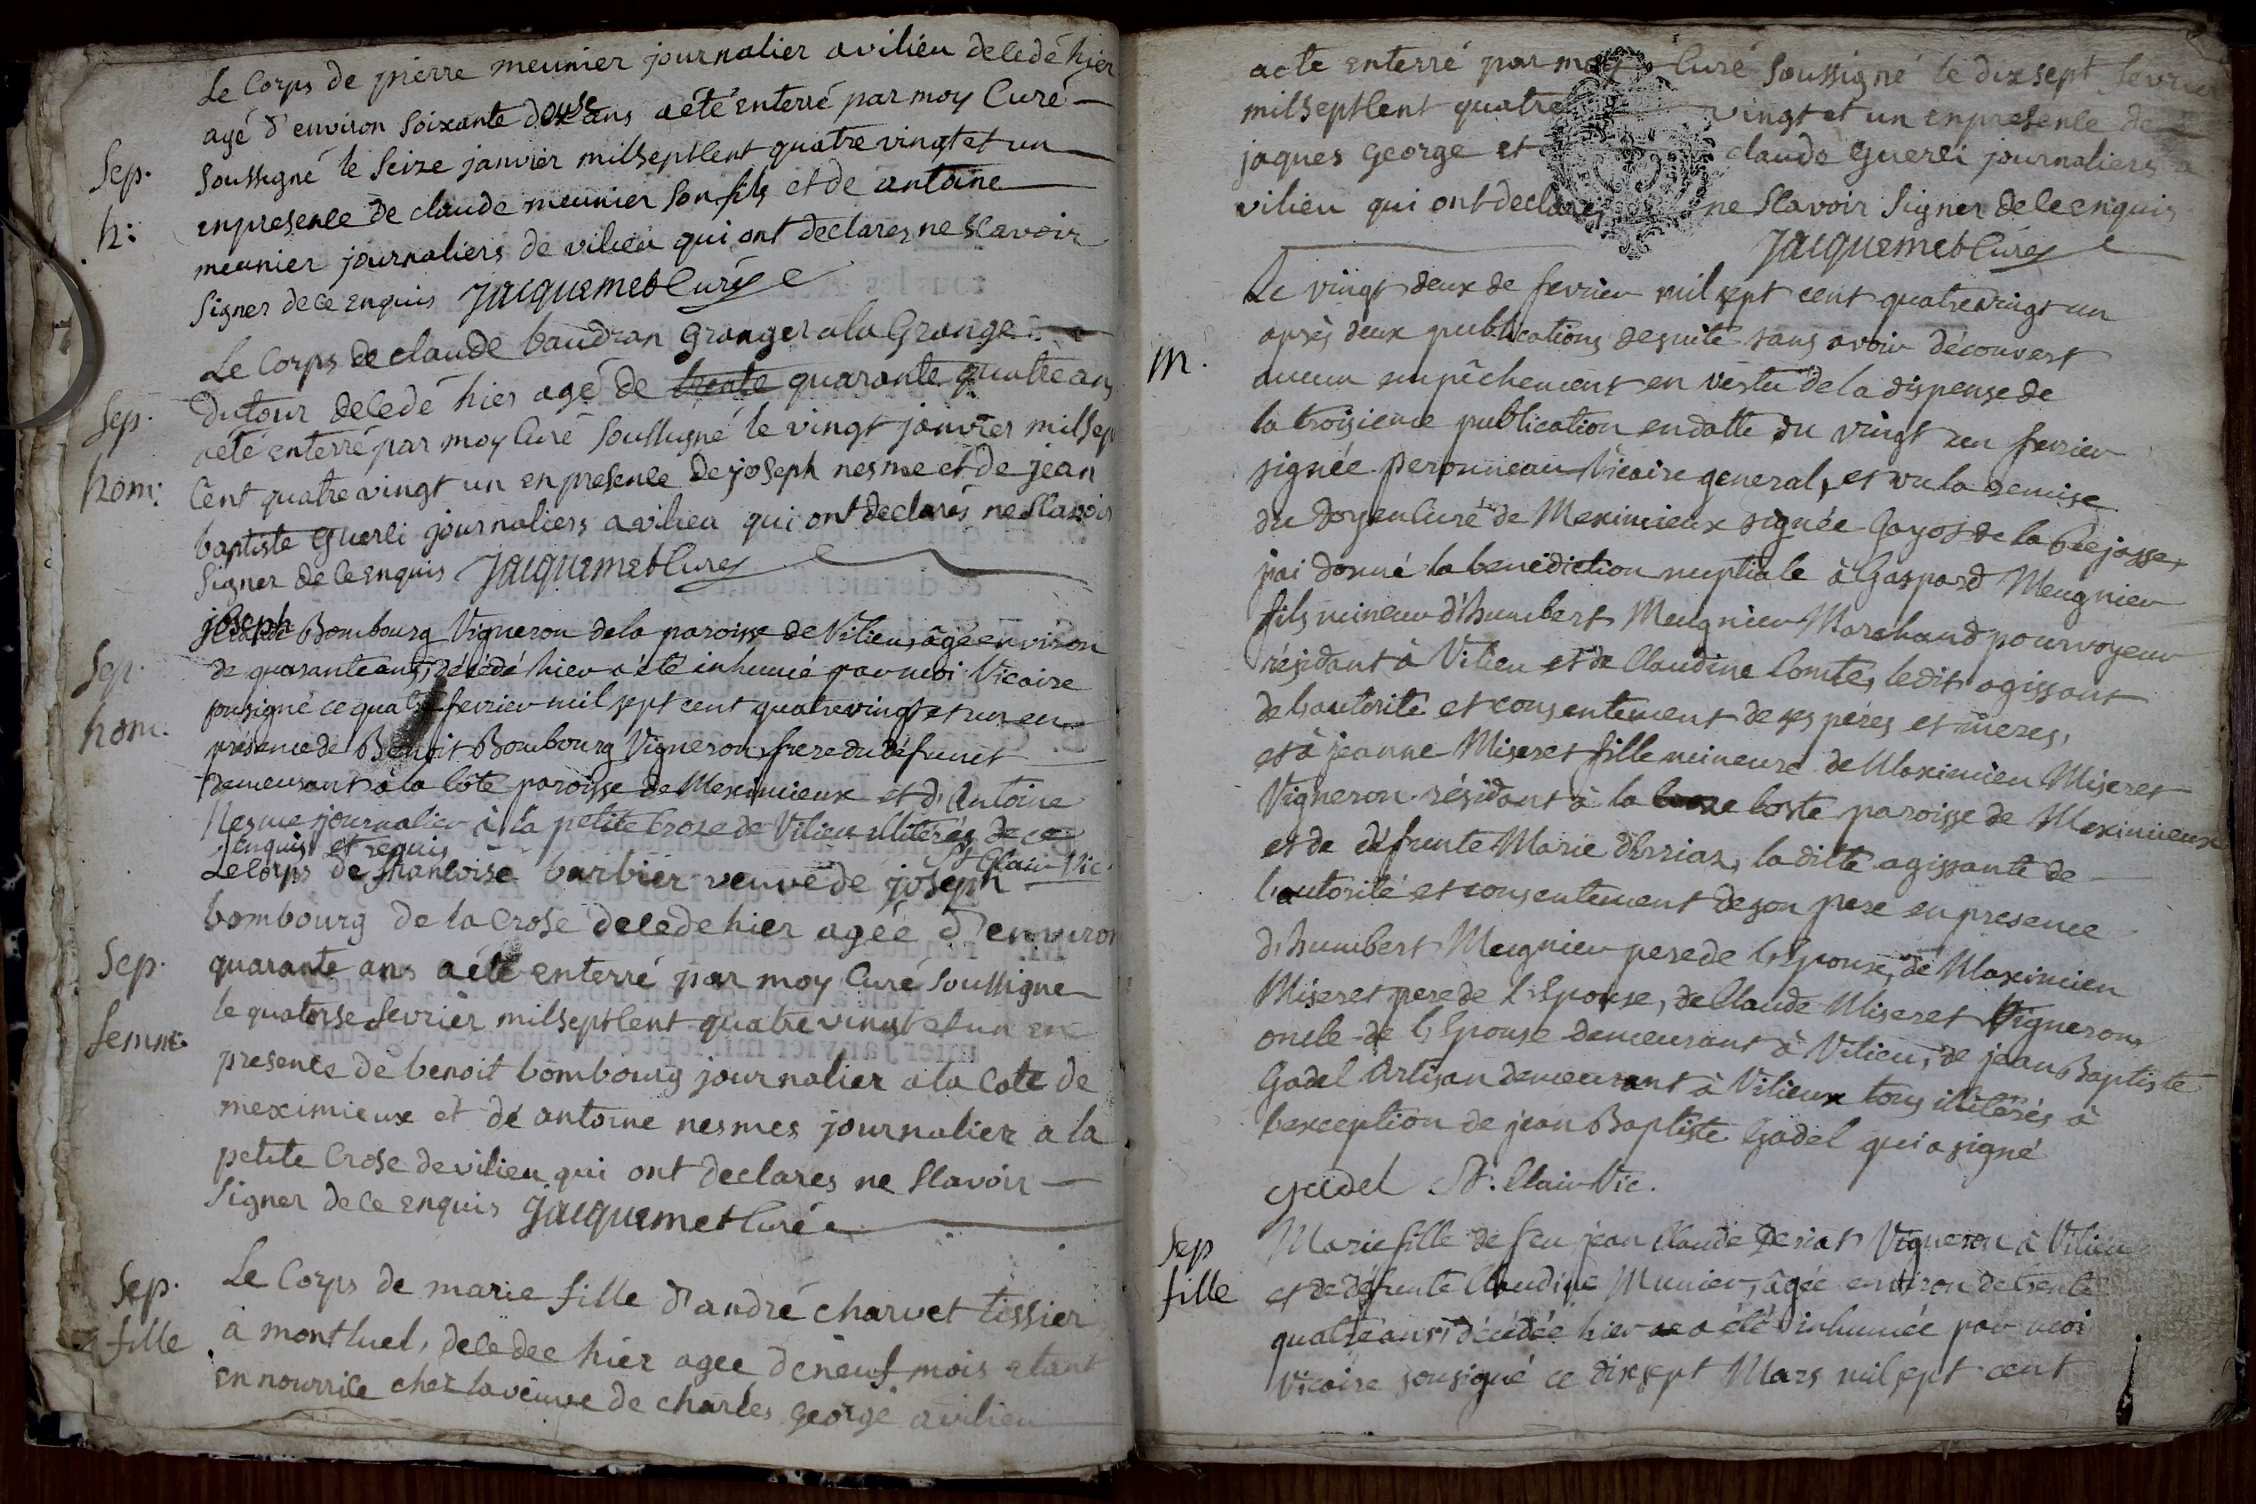 Le Corps de pierre meunier journalier a vilieu decedé hier
agé d'environ soixante douse ans a été enterré par moy Curé
Sep.
h:
soussigné le seize janvier mil sept cent quatre vingt et un
en presence de claude meunier son fils et de antoine
meunier journaliers de vilieu qui ont declarez ne scavoir
signer de ce enquis Jacquemet Curé
Le Corps de claude baudran Granger a la Grange
Sep.
hom:
Dutour decedé hier agé de trente quarante quatre ans
a été enterré par moy Curé soussigné le vingt janvier mil sep
Cent quatre vingt un en presence de joseph nesme et de jean
baptiste Guerci journaliers a vilieu qui ont declarés ne scavoir
signer de ce enquis Jacquemet Curé
joseph
Bombourg Vigneron de la paroisse de Vilieu, âgé environ
Sep.
hom.
de quarante ans, décédé hier a été inhumé par moi Vicaire
sousigné ce quatre fevrier mil sept cent quatrevingt et un en
présence de Benoit Bombourg Vigneron, frere du défunct
Demeurant à la Côte paroisse de Meximieux et d'Antoine
Nesme journalier à la petite Croze de Vilieu illiterés de ce
enquis et requis
St Clair Vic.
Le Corps de francoise barbier veuve de joseph
bombourg de la Crose decede hier agée d'environ
Sep.
femm:
quarante ans a été enterré par moy Curé soussigne
le quatorse fevrier mil sept cent quatre vingt et un en
presence de benoit bombourg journalier a la Cote de
meximieux et de antoine nesmes journalier a la
petite Crose de vilieu qui ont declares ne scavoir
signer de ce enquis Jacquemet Curé
Sep.
fille
Le Corps de marie fille d'andré charvet tissier
a montluel, decedee hier agee de neuf mois etant
en nourrice chez la veuve de charles george a vilieu
acte enterré par moy Curé soussigné le dix sept fevrier
mil sept cent quatre vingt et un en presence de
jaques George et claude Guerci journaliers a
vilieu qui ont declarez ne scavoir signer de ce enquis
Jacquemet Curé
M.
Le vingt deux de fevrier mil sept cent quatrevingt un
après deux publications de suite sans avoir découvert
aucun empêchement en vertu de la dispense de
la troisieme publication en datte du vingt un fevrier
signée peronneau Vicaire general, et vu la remise
du Doyen Curé de Meximieux signée Gayot de la
j'ai donné la benediction nuptiale à Gaspard Meugnier
fils mineur d'humbert Meugnier Marchand pourvoyeur
résidant à Vilieu et de Claudine Comte, ledit agissant
de l'autorité et consentement de ses péres et mères,
et à jeanne Miseret fille mineure de Maximien Miseret
Vigneron résidant à la Coste paroisse de Meximieux
et de défunte Marie la ditte agissante de
l'autorité et consentement de son pere en presence
d'humbert Meugnier pere de l'Epoux, de Maximien
Miseret pere de l'Epouse, de Claude Miseret Vigneron
oncle de l'Epouse demeurant à Vilieu, de jean Baptiste
Gadel Artisan demeurant à Vilieux tous illiterés à
l'exception de jean Baptiste Gadel qui a signé
gadel St. Clair Vic.
Sep
fille
Marie fille de feu jean Claude Vigneron à Vilieu
et de défunte Claudine Munier, âgée environ de trente
quatre ans, décédée hier a été inhumée par moi
Vicaire sousigné ce dix sept Mars mil sept cent